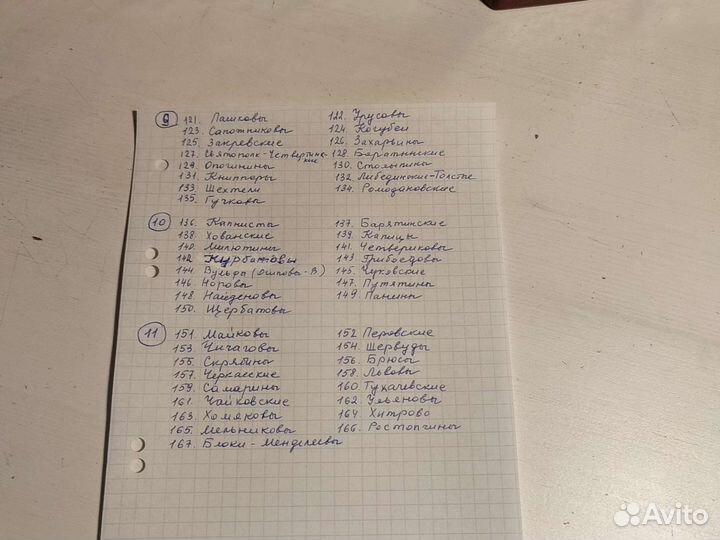 9 121. Пашковы 122. Урусовы
123. Сапожниковы 124. Кочубеи
125. Закревские 126. Захарьины
127. Святополк-Четвертинские 128. Баратынские
129. Опочинины 130. Столыпины
131. Книпперы 132. Лебединские-Толстые
133. Шехтели 134. Ромодановские
135. Гучковы
10 136. Капнисты 137. Барятинские
138. Хованские 139. Капицы
140. Милютины 141. Четвериковы
142 Курбатовы 143 Грибоедовы
144. Вульфы (Ошповы-В) 145. Чуковские
146. Норовы 147. Путятины
148. Найденовы 149. Панины
150. Щербатовы
11 151. Майковы 152 Перовские
153. Чичаговы 154. Шервуды
155. Скрябины 156. Брюсы
157. Черкасские 158. Львовы
159. Самарины 160. Тухачевские
161. Чайковские 162. Ульяновы
163. Хомяковы 164. Хитрово
165. Мельниковы 166. Ростопчины
167. Блоки - Менделеевы
Avito